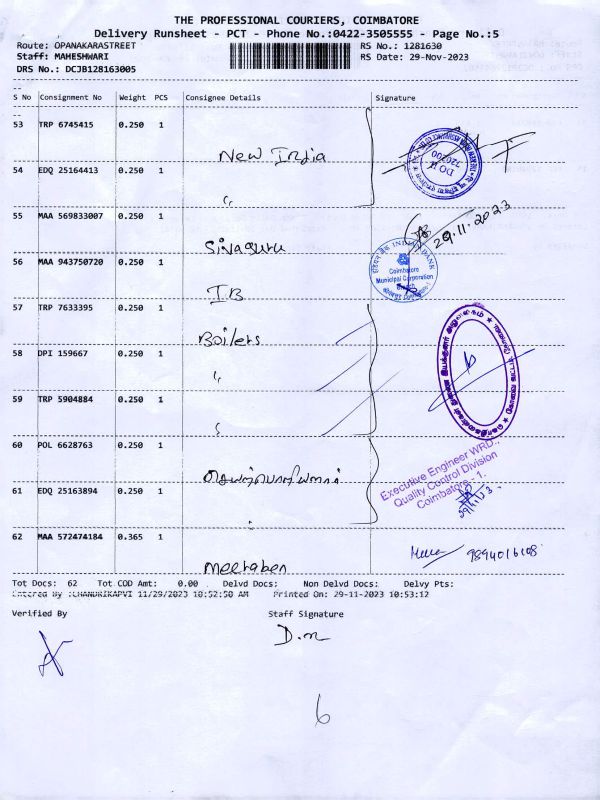 THE PROFESSIONAL COURIERS, COIMBATORE
Delivery Runsheet - PCT - Phone No.:0422-3505555 - Page No.:5
Route: OPANAKARASTREET RS No.: 1281630
Staff: MAHESHWARI RS Date: 29-Nov-2023
DRS No.: DCJB128163005
S No Consignment No Weight PCS Consignee Details Signature
53 TRP 6745415 0.250 1
New India
54 EDQ 25164413 0.250 1
"
55 MAA 569833007 0.250 1
29.11.2023
Sivaguru
56 MAA 943750720 0.250 1
INDIAN BANK
Coimbatore
Municipal Corporation
Branch
IB
57 TRP 7633395 0.250 1
Boilers
58 DPI 159667 0.250 1
"
59 TRP 5904884 0.250 1
"
60 POL 6628763 0.250 1
செயற்பொறியாளர்
Executive Engineer WRD.,
Quality Control Division
Coimbatore - 1.
61 EDQ 25163894 0.250 1
62 MAA 572474184 0.365 1
9894016108
Meeraben
Tot Docs: 62 Tot COD Amt: 0.00 Delvd Docs: Non Delvd Docs: Delvy Pts:
Entered By :CHANDRIKAPVI 11/29/2023 10:52:50 AM Printed On: 29-11-2023 10:53:12
Verified By Staff Signature
D.m
6